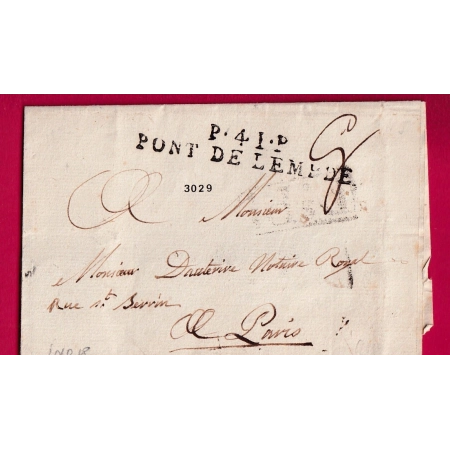 P.41.P
PONT DE LEMPDE
3029
A Monsieur
Monsieur Dauterive Notaire Royal
Rue St
A Paris